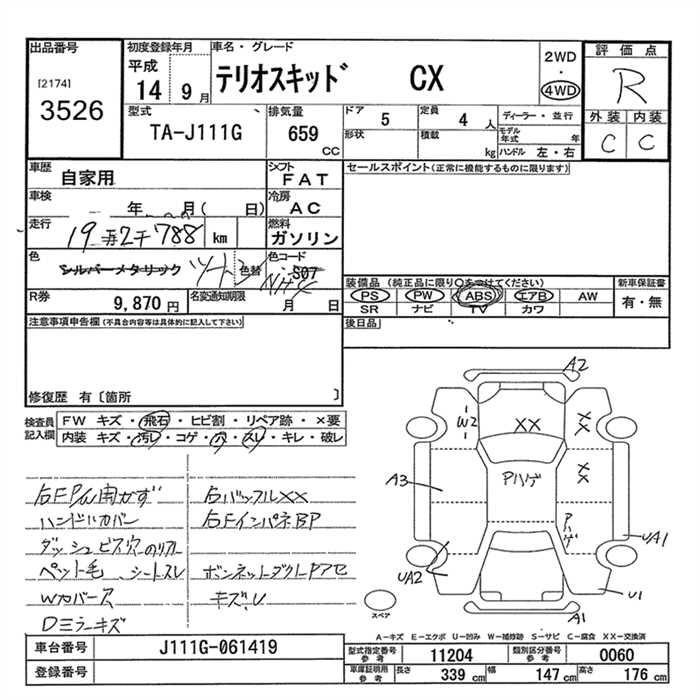 出品番号
[2174]
3526
初度登録年月
平成
14 9月
車名・グレード
テリオスキッド CX
2WD
・
4WD
評価点
R
外装 内装
C C
型式
TA-J111G
排気量
659
CC
ドア 5
形状
定員 4人
積載 kg
ディーラー・並行
モデル年式 年
ハンドル 左・右
車歴
自家用
シフト
FAT
車検
年 月( 日)
冷房
AC
走行
19万2千788 km
燃料
ガソリン
色
シルバーメタリック
色替
色コード
S07
R券
9,870円
名変通知期限
月 日
セールスポイント(正常に機能するものに限ります)
装備品(純正品に限り○をつけてください)
PS PW ABS エアB AW
SR ナビ TV カワ
新車保証書
有・無
後日品
注意事項申告欄(不具合内容等は具体的に記入して下さい)
修復歴 有〔箇所 〕
検査員
記入欄
FW キズ・飛石・ヒビ割・リペア跡・×要
内装 キズ・汚レ・コゲ・穴・スレ・キレ・破レ
ハンドルカバー
ダッシュビス穴
ペット毛、シートスレ
Wカバー
Dミラーキズ
右バッフルXX
右Fインパネ
ボンネットダクト
キズ
A2
W2
XX
XX
XX
A3
Pハゲ
Pハゲ
UA1
UA2
U1
A1
スペア
A-キズ E-エクボ U-凹み W-補修跡 S-サビ C-腐食 XX-交換済
車台番号
J111G-061419
登録番号
型式指定番号
参考
11204
類別区分番号
参考
0060
車庫証明用
参考
長さ 339 cm 幅 147 cm 高さ 176 cm